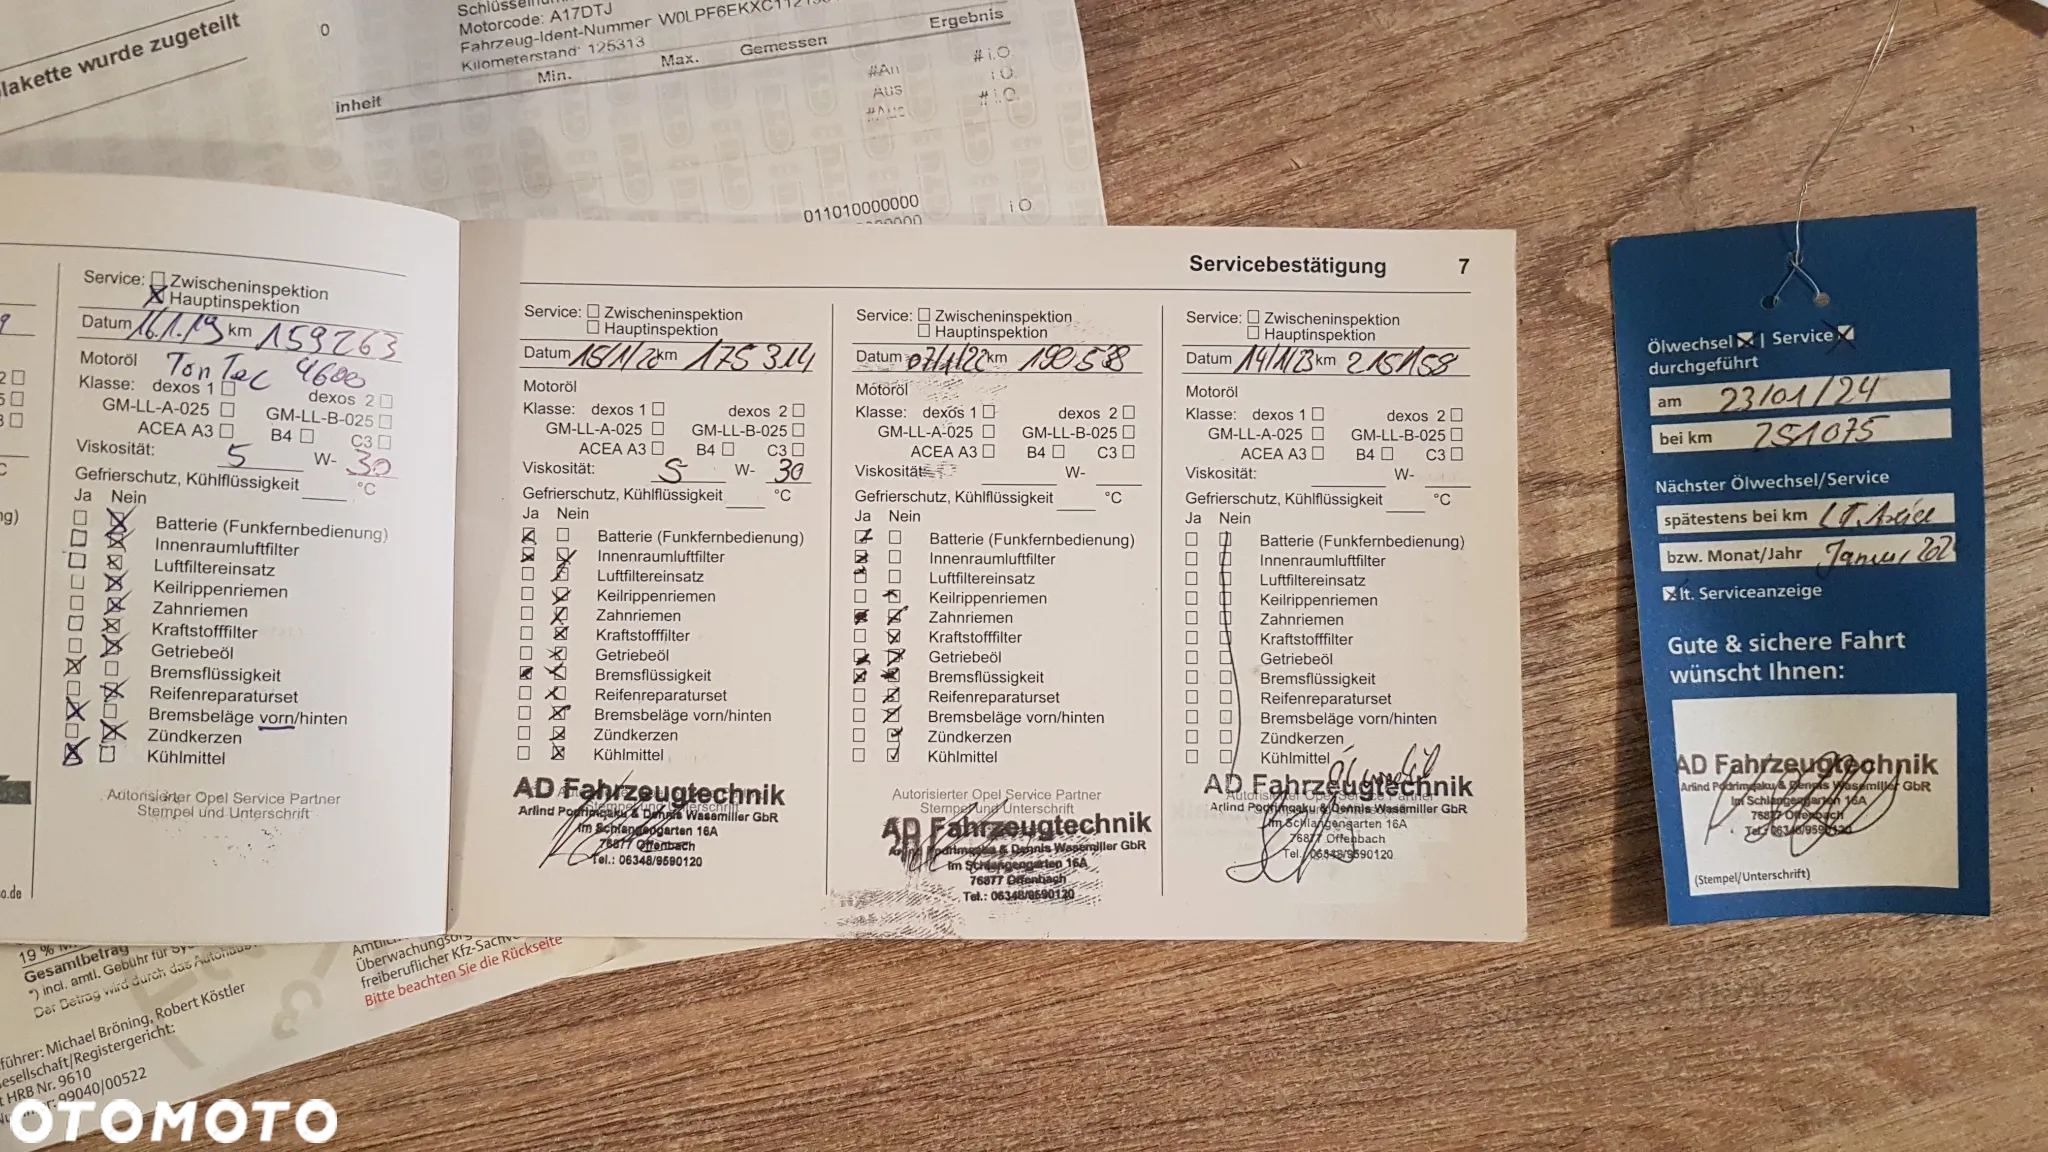 lakette wurde zugeteilt
0
Motorcode: A17DTJ
Fahrzeug-Ident-Nummer
Kilometerstand: 125313
inheit Min. Max. Gemessen Ergebnis
#An # i.O.
Aus i.O.
#Aus # i.O.
011010000000 i.O
Service: Zwischeninspektion
Hauptinspektion
Datum 16.1.19 km 159263
Motoröl
Klasse: dexos 1 dexos 2
GM-LL-A-025 GM-LL-B-025
ACEA A3 B4 C3
Viskosität: 5 W- 30
Gefrierschutz, Kühlflüssigkeit °C
Ja Nein
Batterie (Funkfernbedienung)
Innenraumluftfilter
Luftfiltereinsatz
Keilrippenriemen
Zahnriemen
Kraftstofffilter
Getriebeöl
Bremsflüssigkeit
Reifenreparaturset
Bremsbeläge vorn/hinten
Zündkerzen
Kühlmittel
Autorisierter Opel Service Partner
Stempel und Unterschrift
o.de
Servicebestätigung 7
Service: Zwischeninspektion
Hauptinspektion
Datum 15/1/20 km 175314
Motoröl
Klasse: dexos 1 dexos 2
GM-LL-A-025 GM-LL-B-025
ACEA A3 B4 C3
Viskosität: 5 W- 30
Gefrierschutz, Kühlflüssigkeit °C
Ja Nein
Batterie (Funkfernbedienung)
Innenraumluftfilter
Luftfiltereinsatz
Keilrippenriemen
Zahnriemen
Kraftstofffilter
Getriebeöl
Bremsflüssigkeit
Reifenreparaturset
Bremsbeläge vorn/hinten
Zündkerzen
Kühlmittel
AD Fahrzeugtechnik
Arlind Podrimqaku & Dennis Wasemiller GbR
Im Schlangengarten 16A
76877 Offenbach
Tel.: 06348/9590120
Service: Zwischeninspektion
Hauptinspektion
Datum 07/1/22 km 190538
Motoröl
Klasse: dexos 1 dexos 2
GM-LL-A-025 GM-LL-B-025
ACEA A3 B4 C3
Viskosität: W-
Gefrierschutz, Kühlflüssigkeit °C
Ja Nein
Batterie (Funkfernbedienung)
Innenraumluftfilter
Luftfiltereinsatz
Keilrippenriemen
Zahnriemen
Kraftstofffilter
Getriebeöl
Bremsflüssigkeit
Reifenreparaturset
Bremsbeläge vorn/hinten
Zündkerzen
Kühlmittel
Autorisierter Opel Service Partner
Stempel und Unterschrift
AD Fahrzeugtechnik
Arlind Podrimqaku & Dennis Wasemiller GbR
Im Schlangengarten 16A
76877 Offenbach
Tel.: 06348/9590120
Service: Zwischeninspektion
Hauptinspektion
Datum 14/1/23 km 215158
Motoröl
Klasse: dexos 1 dexos 2
GM-LL-A-025 GM-LL-B-025
ACEA A3 B4 C3
Viskosität: W-
Gefrierschutz, Kühlflüssigkeit °C
Ja Nein
Batterie (Funkfernbedienung)
Innenraumluftfilter
Luftfiltereinsatz
Keilrippenriemen
Zahnriemen
Kraftstofffilter
Getriebeöl
Bremsflüssigkeit
Reifenreparaturset
Bremsbeläge vorn/hinten
Zündkerzen
Kühlmittel
AD Fahrzeugtechnik
Autorisierter Opel Service Partner
Arlind Podrimqaku & Dennis Wasemiller GbR
Im Schlangengarten 16A
76877 Offenbach
Tel.: 06348/9590120
Ölwechsel | Service
durchgeführt
am 23/01/24
bei km 251075
Nächster Ölwechsel/Service
spätestens bei km
bzw. Monat/Jahr Januar
lt. Serviceanzeige
Gute & sichere Fahrt
wünscht Ihnen:
AD Fahrzeugtechnik
Arlind Podrimqaku & Dennis Wasemiller GbR
Im Schlangengarten 16A
76877 Offenbach
Tel.: 06348/9590120
(Stempel/Unterschrift)
19 %
Gesamtbetrag
*) incl. amtl. Gebühr für
Der Betrag wird durch das
führer: Michael Bröning, Robert Köstler
esellschaft/Registergericht:
HRB Nr. 9610
99040/00522
Überwachungsorg
freiberuflicher Kfz-Sachv
Bitte beachten Sie die Rückseite
OTOMOTO